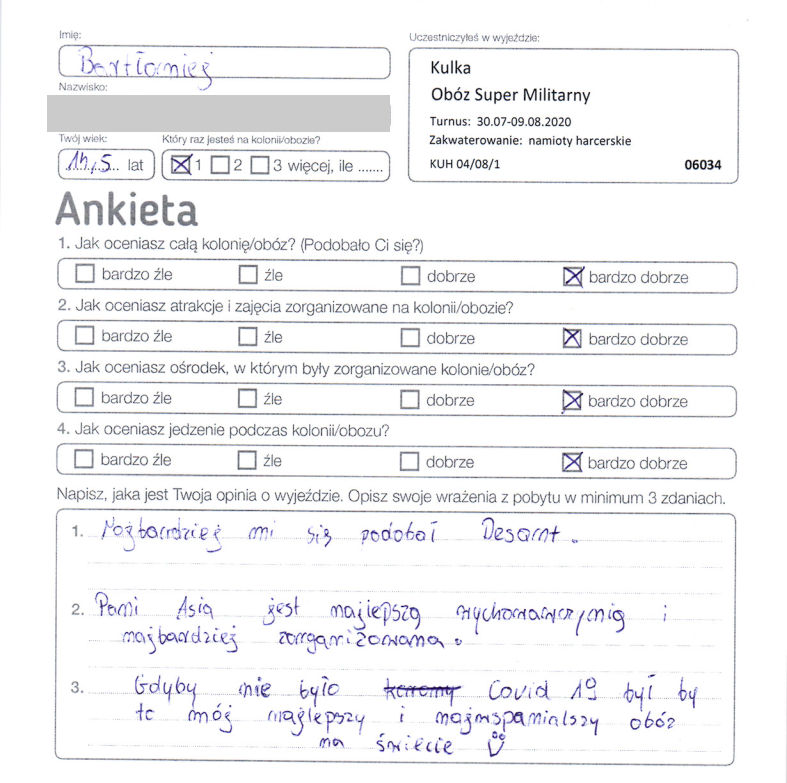 Imię:
Uczestniczyłeś w wyjeździe:
Bartłomiej
Kulka
Nazwisko:
Obóz Super Militarny
Turnus: 30.07-09.08.2020
Twój wiek:
Który raz jesteś na kolonii/obozie?
Zakwaterowanie: namioty harcerskie
14,5 lat
1 2 3 więcej, ile .......
KUH 04/08/1 06034
Ankieta
1. Jak oceniasz całą kolonię/obóz? (Podobało Ci się?)
bardzo źle źle dobrze bardzo dobrze
2. Jak oceniasz atrakcje i zajęcia zorganizowane na kolonii/obozie?
bardzo źle źle dobrze bardzo dobrze
3. Jak oceniasz ośrodek, w którym były zorganizowane kolonie/obóz?
bardzo źle źle dobrze bardzo dobrze
4. Jak oceniasz jedzenie podczas kolonii/obozu?
bardzo źle źle dobrze bardzo dobrze
Napisz, jaka jest Twoja opinia o wyjeździe. Opisz swoje wrażenia z pobytu w minimum 3 zdaniach.
1. Najbardziej mi się podobał Desant.
2. Pani Asia jest najlepszą wychowawczynią i
najbardziej zorganizowana.
3. Gdyby nie było Covid 19 był by
to mój najlepszy i najwspanialszy obóz
na świecie